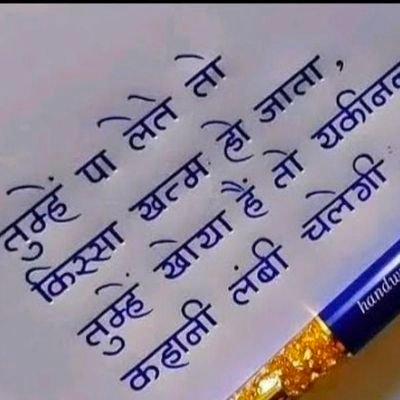 तुम्हें पा लेते तो
किस्सा खत्म हो जाता,
तुम्हें खोया हैं तो यकीनन
कहानी लंबी चलेगी